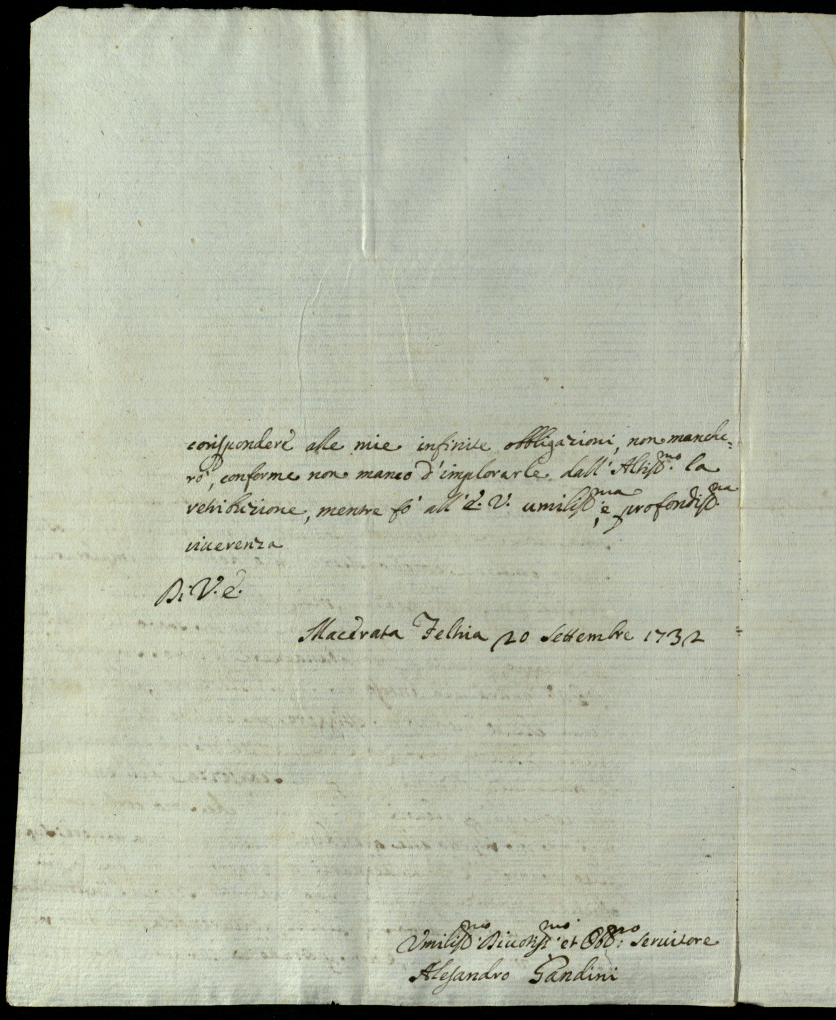 corrispondere alle mie infinite obbligazioni, non manche=
rò, conforme non manco d'implorarle dall'Altiss.mo la
retribuzione, mentre fò all'E. V. umiliss.ma, e profondiss.ma
riverenza
Di V. E.
Macerata Feltria 20 Settembre 1732
Umiliss.mo Divotiss.mo et Obb.mo Servitore
Alesandro Gandini